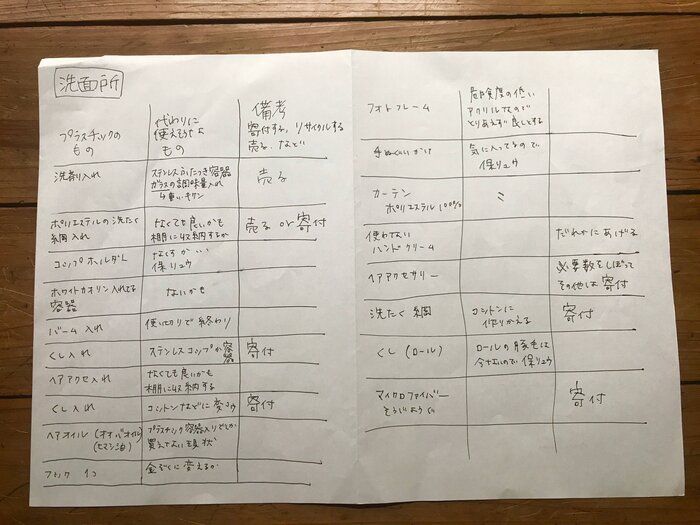 洗面所
プラスチックの
もの
代わりに
使えそうな
もの
備考
寄付する, リサイクルする
売る, など
洗剤入れ
ステンレスふたつき容器
ガラスの調味量入れ
売る
ポリエステルの洗たく
網入れ
なくても良いかも
棚に収納するか
売る or 寄付
コップホルダー
保リュウ
ホワイトカオリン入れてる
容器
ないかも
バーム入れ
使い切りで終わり
くし入れ
ステンレスコップか容器
寄付
ヘアアクセ入れ
なくても良いかも
棚に収納する
くし入れ
コットンなどに変コウ
寄付
ヘアオイル (オオバオイル)
(ヒマシ油)
プラスチック容器入りでしか
買えてない現状
フック 1コ
金ぞくに変えるか
フォトフレーム
危険度の低い
アクリルなので
とりあえず良しとする
手ぬぐいかけ
気に入ってるので
保リュウ
カーテン
ポリエステル100%
〃
使わない
ハンドクリーム
だれかにあげる
ヘアアクセサリー
必要数をしぼって
その他は寄付
洗たく網
コットンに
作りかえる
寄付
くし (ロール)
ロールの豚毛は
今ないので保リュウ
マイクロファイバー
そうじよう
寄付